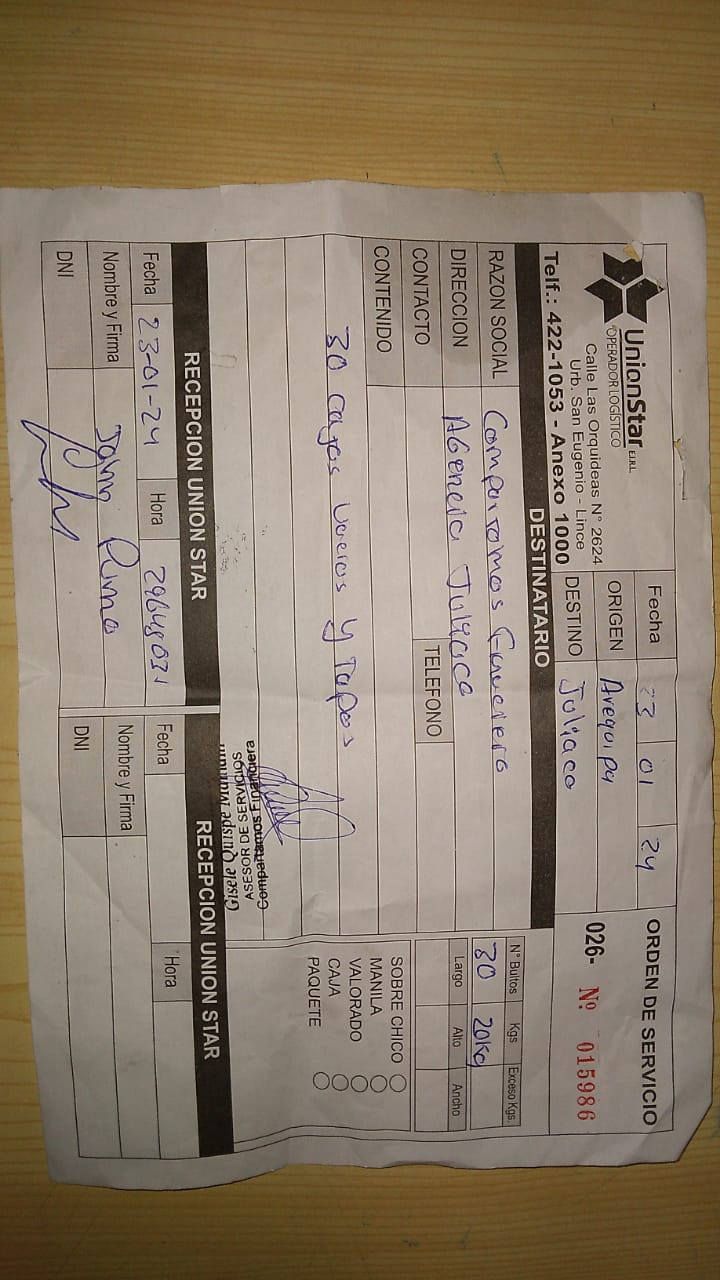 UnionStar E.I.R.L.
OPERADOR LOGÍSTICO
Calle Las Orquideas N° 2624
Urb. San Eugenio - Lince
Telf.: 422-1053 - Anexo 1000
Fecha 23 01 24
ORIGEN Arequipa
DESTINO Juliaca
ORDEN DE SERVICIO
026- Nº 015986
DESTINATARIO
RAZON SOCIAL Compartamos Financiera
DIRECCION Agencia Juliaca
CONTACTO
TELEFONO
CONTENIDO
30 cajas vacias y tapas
N° Bultos Kgs Exceso Kgs.
30 20Kg
Largo Alto Ancho
SOBRE CHICO
MANILA
VALORADO
CAJA
PAQUETE
Gisele Quispe
ASESOR DE SERVICIOS
Compartamos Financiera
RECEPCION UNION STAR
Fecha 23-01-24 Hora 29648031
Nombre y Firma
DNI
RECEPCION UNION STAR
Fecha Hora
Nombre y Firma
DNI